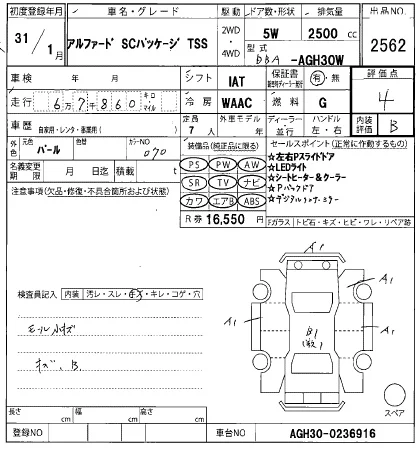 初度登録年月 車名・グレード 駆動 ドア数・形状 排気量 出品NO
31/1月 アルファード SCパッケージ TSS 2WD・4WD 5W 2500cc 2562
型式 DBA -AGH30W
車検 年 月 シフト IAT 保証書 有・無 評価点
走行 6万7千860 キロ・マイル 冷房 WAAC 燃料 G 4
車歴 自家用・レンタ・事業用( ) 定員 7人 外車モデル 年 ディーラー・並行 ハンドル 左・右 内装評価 B
外色 元色 パール 色替 カラーNO 070
装備品(純正品に限る) セールスポイント(正常に作動するもの)
名義変更期限 月 日迄 積載 t
PS PW AW
SR TV ナビ
カワ エアB ABS
☆左右Pスライドドア
☆LEDライト
☆シートヒーター&クーラー
☆Pバックドア
☆デジタルインナーミラー
注意事項(欠品・修復・不具合箇所および状態)
R券 16,550 円
Fガラス トビ石・キズ・ヒビ・ワレ・リペア跡
検査員記入 内装 汚レ・スレ・キズ・キレ・コゲ・穴
モール小キズ
キズ、B.
A1
A1
A1
A1
スペア
長さ cm 幅 cm 高さ cm
登録NO 車台NO AGH30-0236916